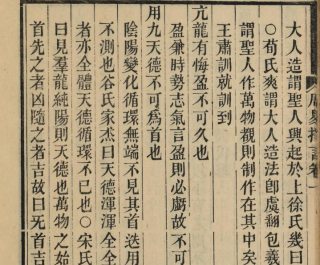 大人造謂聖人興起於上徐氏幾曰
○荀氏爽謂大人造法即虞翻包羲
謂聖人作萬物覩則制作在其中矣
王肅訓就訓到
亢龍有悔盈不可久也
盈兼時勢志氣言盈則必虧故不可
用九天德不可爲首也
陰陽變化循環無端不見其首迭用
不測也谷氏家杰曰天德渾渾全
者亦全體天德循環不已也○宋氏
曰見羣龍純陽則天德也萬物之始
首先之者凶隨之者吉故曰无首吉
周易
言卷一